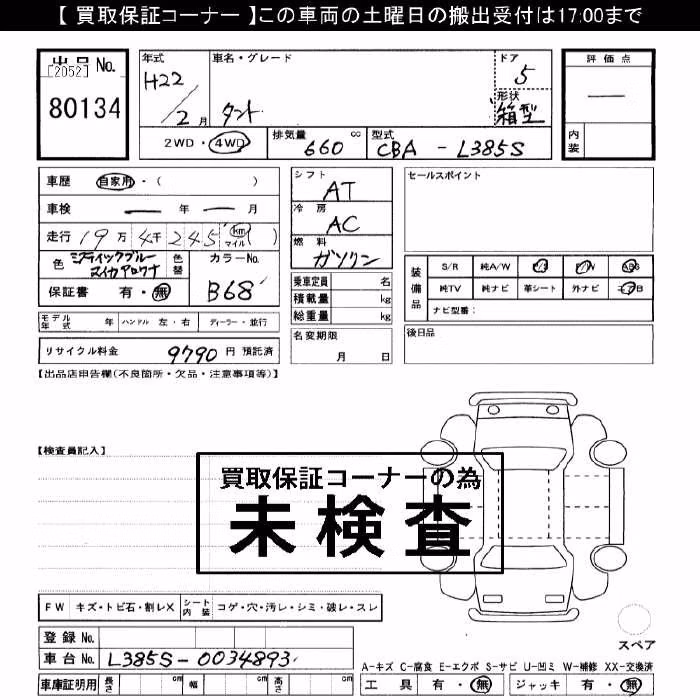 【 買取保証コーナー 】この車両の土曜日の搬出受付は17:00まで
出品 No.
[2052]
80134
年式
H22
/
2 月
車名・グレード
タント
ドア
5
形状
箱型
評価点
—
内装
2WD・4WD
排気量 cc
660
型式
CBA - L385S
車歴 自家用・( )
車検 — 年 — 月
走行 19 万 4 千 245 km マイル ( )
色
ミスティックブルー
マイカアロワナ
色替
カラーNo.
B68
保証書 有・無
モデル年式 年 ハンドル 左・右 ディーラー・並行
リサイクル料金 9790 円 預託済
シフト
AT
冷房
AC
燃料
ガソリン
乗車定員 名
積載量 kg
総重量 kg
名変期限
月 日
セールスポイント
装備品
S/R 純A/W P/S P/W ABS
純TV 純ナビ 革シート 外ナビ エアB
ナビ型番:
後日品
【出品店申告欄(不良箇所・欠品・注意事項等)】
【検査員記入】
買取保証コーナーの為
未検査
FW キズ・トビ石・割レX シート内装 コゲ・穴・汚レ・シミ・破レ・スレ
登録 No.
車台 No. L385S-0034893
車庫証明用 長さ cm 幅 cm 高さ cm
スペア
A-キズ C-腐食 E-エクボ S-サビ U-凹ミ W-補修 XX-交換済
工具 有・無 ジャッキ 有・無